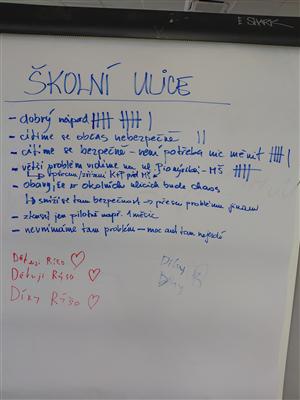 ŠKOLNÍ ULICE
- dobrý nápad
- cítíme se občas nebezpečně
- cítíme se bezpečně - není potřeba nic měnit
- větší problém vidíme na ul. Pionýrská - MŠ
- obavy, že v okolních ulicích bude chaos
↳ sníží se tam bezpečnost → přesun problému jinam
- zkusil jen pilotně např. 1 měsíc
- nevnímáme tam problém - moc aut tam nejezdí
Děkuji Rišo ♡
Děkuji Rišo ♡
Díky Rišo ♡
Díky
Díky